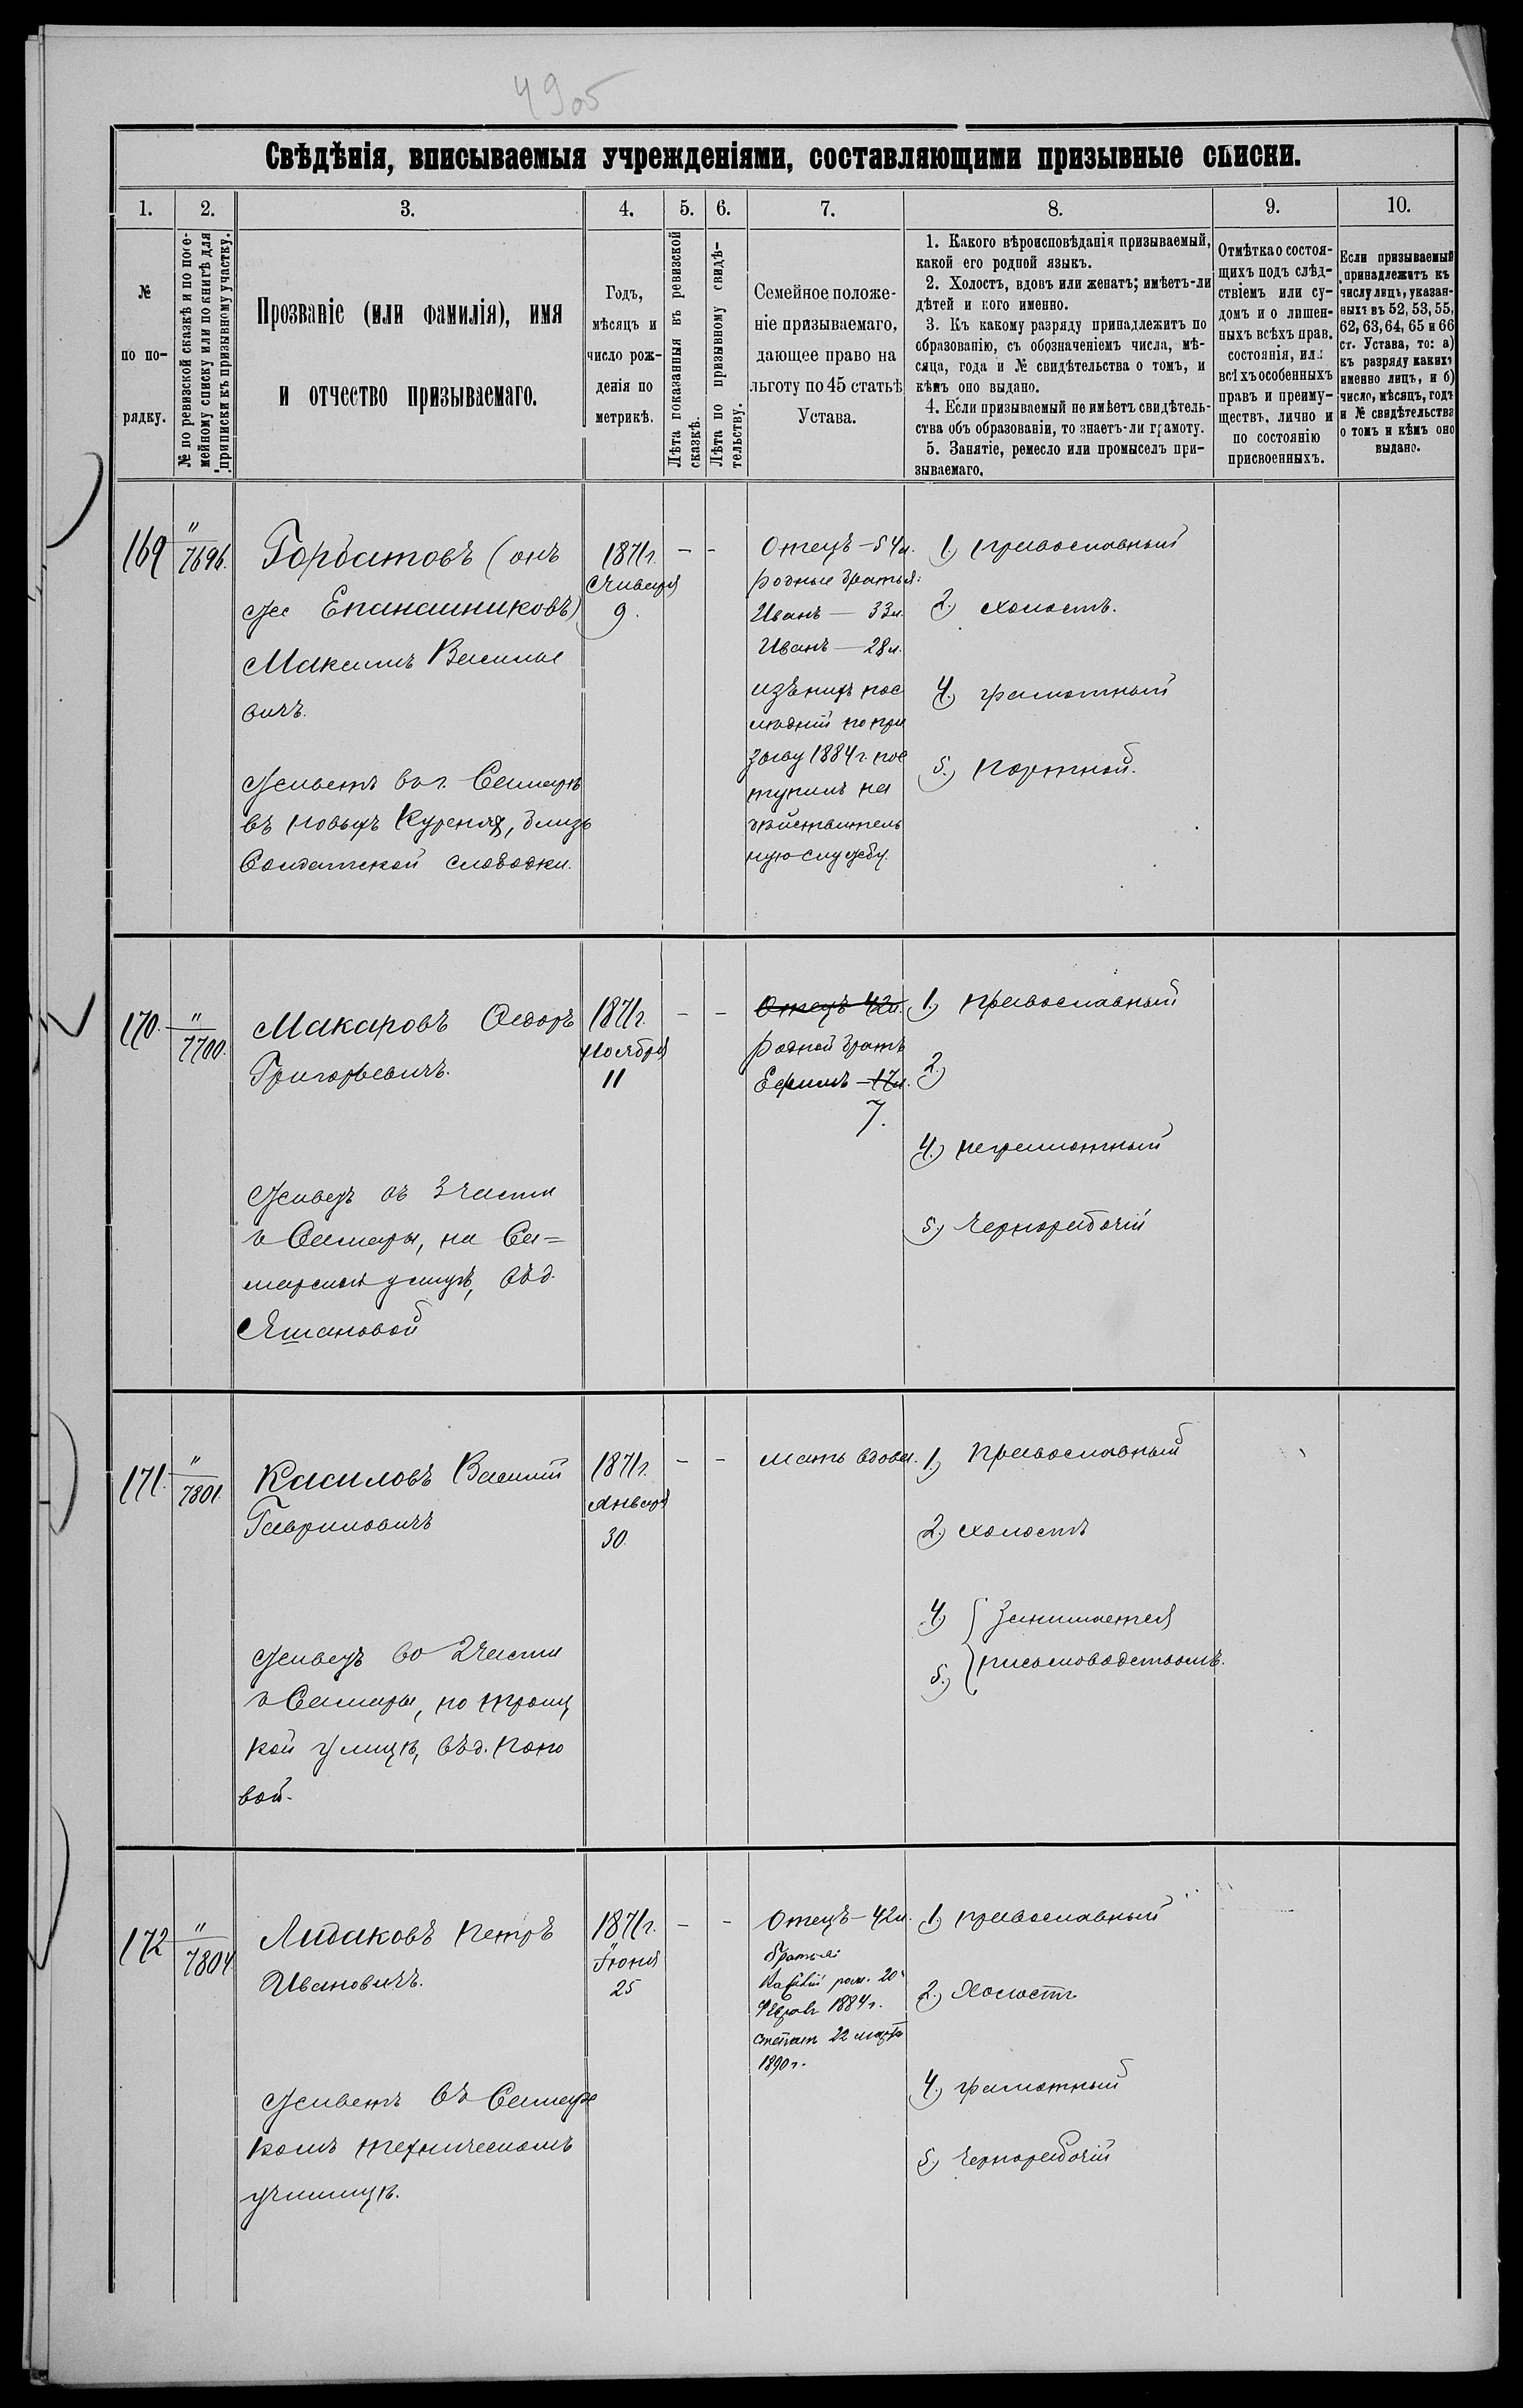 4905
Свѣдѣнія, вписываемыя учрежденіями, составляющими призывные списки.
1. 2. 3. 4. 5. 6. 7. 8. 9. 10.
№
по по-
рядку.
№ по ревизской сказкѣ и по посе-
мейному списку или по книгѣ для
приписки къ призывному участку.
Прозваніе (или фамилія), имя
и отчество призываемаго.
Годъ,
мѣсяцъ и
число рож-
денія по
метрикѣ.
Лѣта показанныя въ ревизской
сказкѣ.
Лѣта по призывному свидѣ-
тельству.
Семейное положе-
ніе призываемаго,
дающее право на
льготу по 45 статьѣ
Устава.
1. Какого вѣроисповѣданія призываемый,
какой его родной языкъ.
2. Холостъ, вдовъ или женатъ; имѣетъ-ли
дѣтей и кого именно.
3. Къ какому разряду принадлежитъ по
образованію, съ обозначеніемъ числа, мѣ-
сяца, года и № свидѣтельства о томъ, и
кѣмъ оно выдано.
4. Если призываемый не имѣетъ свидѣтель-
ства объ образованіи, то знаетъ-ли грамоту.
5. Занятіе, ремесло или промыселъ при-
зываемаго.
Отмѣтка о состоя-
щихъ подъ слѣд-
ствіемъ или су-
домъ и о лишен-
ныхъ всѣхъ прав.
состоянія, или
всѣхъ особенныхъ
правъ и преиму-
ществъ, лично и
по состоянію
присвоенныхъ.
Если призываемый
принадлежитъ къ
числу лицъ, указан-
ныхъ въ 52, 53, 55,
62, 63, 64, 65 и 66
ст. Устава, то: а)
къ разряду какихъ
именно лицъ, и б)
число, мѣсяцъ, годъ
и № свидѣтельства
о томъ и кѣмъ оно
выдано.
169
"
7696.
Горбатовъ (онъ
же Епанашниковъ)
Максимъ Василье
вичъ.
Живетъ въ г. Самарѣ
въ новыхъ Куреняхъ, близь
Солдатской слободки.
1871 г.
Января
9.
- -
Отецъ - 54 л.
родные братья:
Иванъ - 33 л.
Иванъ - 28 л.
изъ нихъ пос
лѣдній по при
зыву 1884 г. пос
тупилъ на
дѣйствитель
ную службу.
1.) православный
2.) холостъ.
4.) грамотный
5.) портной.
170.
"
7700.
Макаровъ Ѳедоръ
Григорьевичъ.
Живетъ въ 3 части
г Самары, на Са=
марской улицѣ, въ д.
Яшановой
1871 г.
Ноября
11
- -
Отецъ 42 л.
родной братъ
Ефимъ - 17 л.
7.
1.) православный
2.)
4.) неграмотный
5.) чернорабочій
171.
"
7801.
Касиловъ Василій
Гавриловичъ
Живетъ во 2 части
г Самары, по Троиц
кой улицѣ, въ д. Попо
вой.
1871 г.
Января
30.
- -
мать вдова.
1.) православный
2.) холостъ
4.) занимается
5.) письмоводствомъ.
172
"
7804
Лидаковъ Петръ
Ивановичъ.
Живетъ въ Самарс
комъ техническомъ
училищѣ.
1871 г.
Іюня
25
- -
Отецъ - 42 л.
братья:
род. 20
Февр. 1884 г.
Степан 22 марта
1890 г.
1.) православный
2.) Холостъ
4.) грамотный
5.) чернорабочій